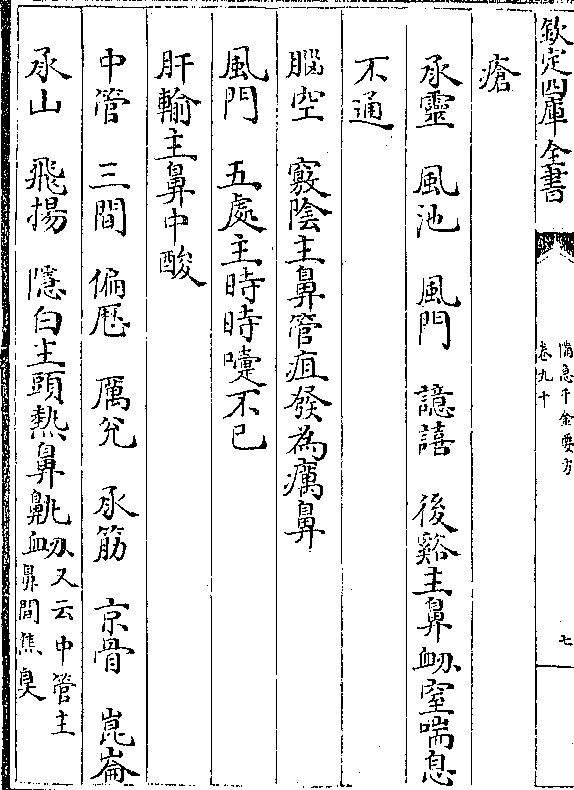 欽定四庫全書
備急千金要方
卷九十
七
瘡
承靈 風池 風門 譩譆 後谿主鼻衄窒喘息
不通
腦空 竅陰主鼻管疽發為癘鼻
風門 五處主時時嚏不已
肝輸主鼻中酸
中管 三間 偏歷 厲兌 承筋 京骨 崑崙
承山 飛揚 隱白主頭熱鼻鼽衄又云中管主鼻間焦臭